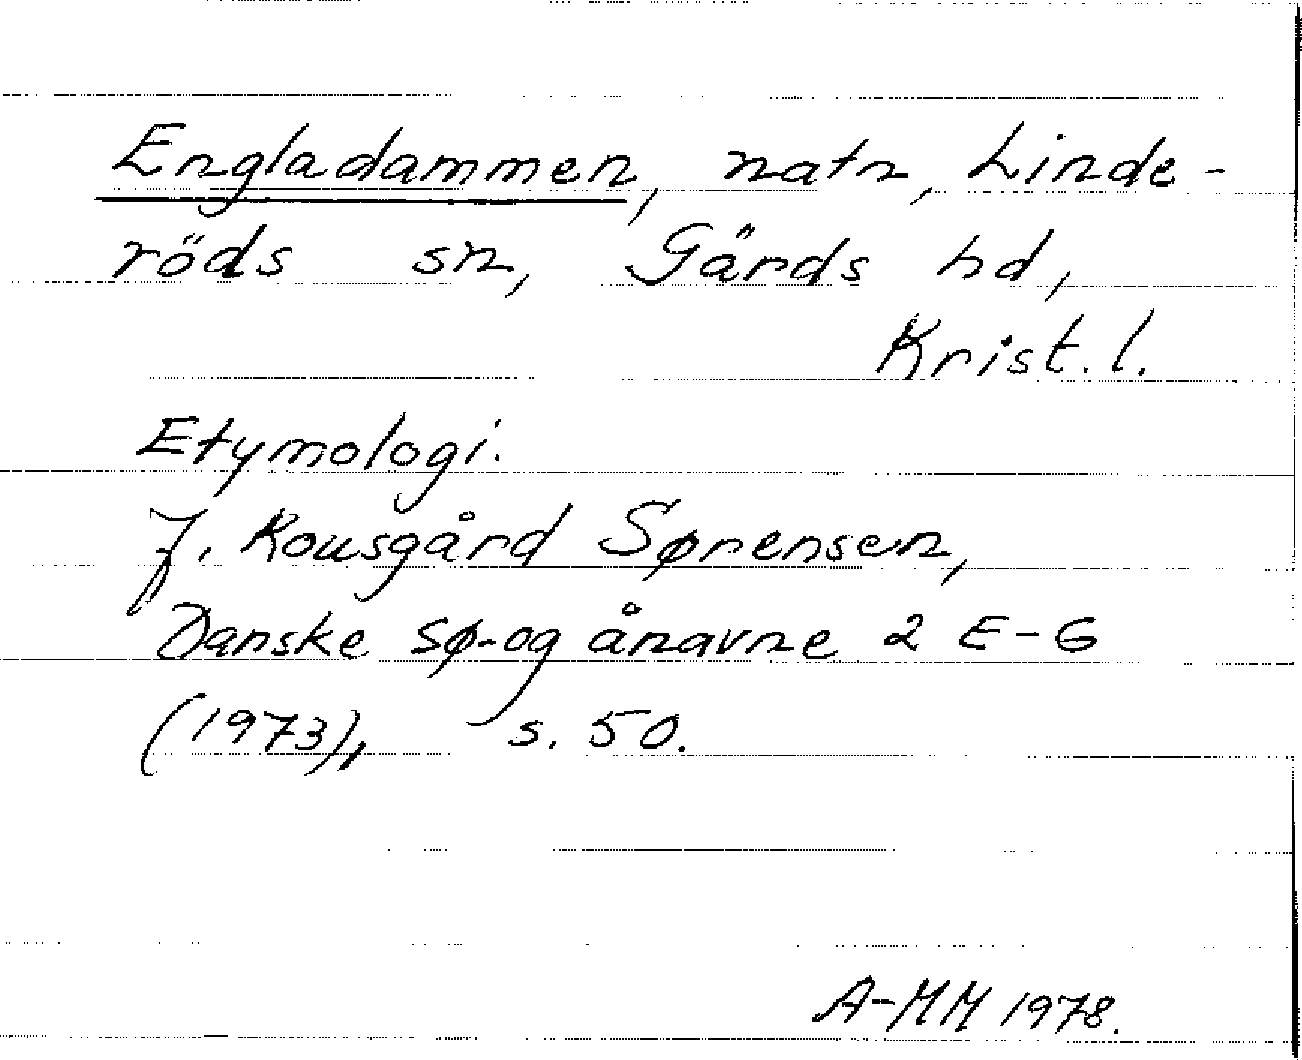 Engladammen, natn, Linde-
röds sn, Gärds hd,
Krist. l.
Etymologi.
J. Kousgård Sørensen,
Danske sø- og ånavne 2 E-G
(1973), s. 50.
A-MM 1978.